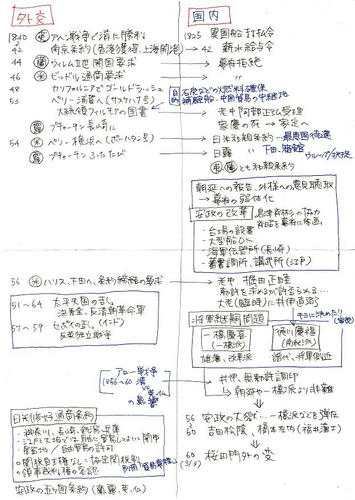 外交
国内
1840 英 アヘン戦争で清に勝利
42 南京条約(香港獲得、上海開港)
44 蘭 ウィレムII世 開国要求
46 米 ビッドル通商要求
48 カリフォルニアでゴールドラッシュ
53 ペリー浦賀へ(サスケハナ号)
大統領フィルモアの国書
露 プチャーチン長崎に
54 米 ペリー横浜へ(ポーハタン号)
露 プチャーチンふたたび
1825 異国船打払令
42 薪水給与令
幕府拒絶
〃
目的
石炭などの燃料確保
補給船・中国貿易の中継地
老中阿部正弘受理
家慶の死 → 家定へ
日米和親条約 … 最恵国待遇
日露 〃 下田・箱館
ウルップ/択捉
英 蘭 とも和親条約
朝廷への報告、外様への意見聴取
→ 幕府の弱体化
安政の改革
島津斉彬らの協力
・台場の設置
・大型船OK
・海軍伝習所(長崎)
・蕃書調所、講武所(江戸)
56 米 ハリス、下田へ、条約締結の要求
51~64 太平天国の乱
洪秀全、反清朝革命軍
57~59 セポイの乱(インド)
反英独立戦争
老中 堀田正睦
勅許を求めるが許されず…
大老(臨時)に井伊直弼
将軍継嗣問題
一橋慶喜
(一橋派)
雄藩、改革派
徳川慶福
(南紀派)
譜代、将軍側近
アロー戦争
(1856~60 清
井伊、無勅許調印
→ 朝廷や一橋派より非難
日米修好通商条約
・神奈川、長崎、新潟、兵庫
・領事裁判権の容認
安政の五カ国条約(蘭、露、英、仏)
安政の大獄 … 一橋派などを弾圧
吉田松陰、橋本左内(福井藩士)
60 桜田門外の変
(3/3)